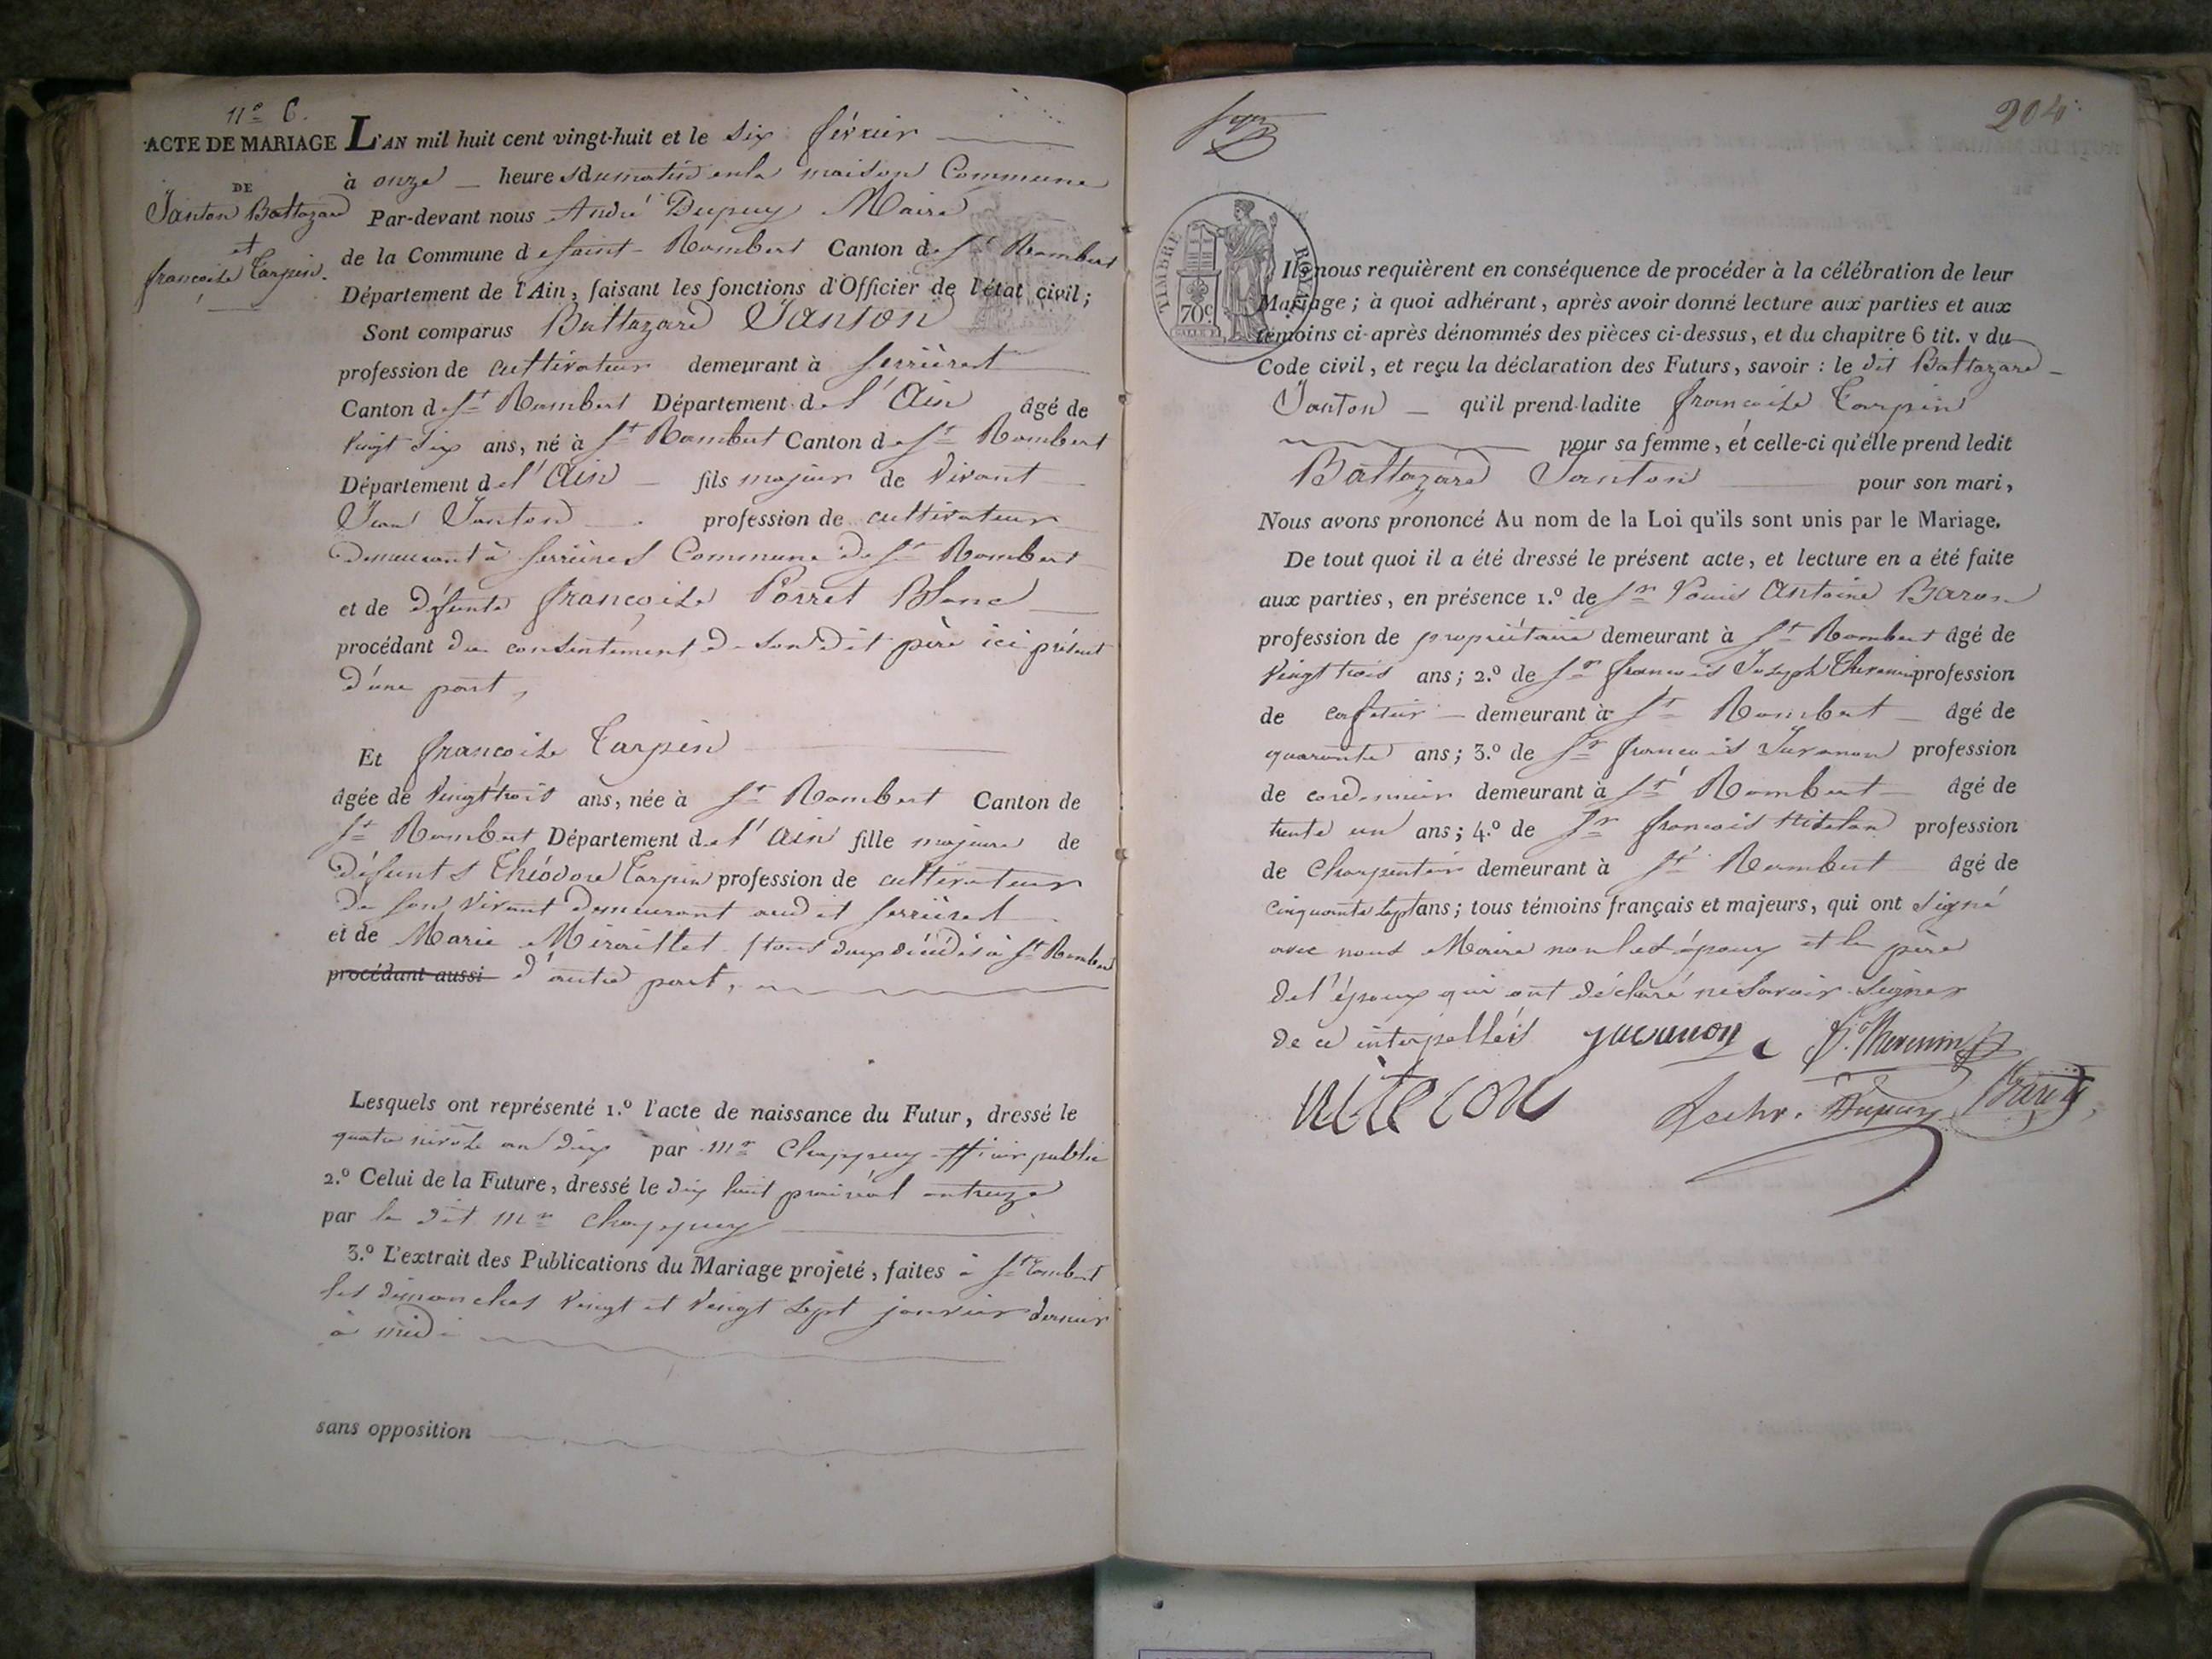 n.o 6.
ACTE DE MARIAGE
DE
Janton Baltazard
et
françoise Tarpin.
L'AN mil huit cent vingt-huit et le six février
à onze heures du matin en la maison Commune
Par-devant nous André Dupuy Maire
de la Commune de Saint-Rambert Canton de St Rambert
Département de l'Ain, faisant les fonctions d'Officier de l'état civil;
Sont comparus Baltazard Janton
profession de cultivateur demeurant à Serrières
Canton de St Rambert Département de l'Ain âgé de
vingt six ans, né à St Rambert Canton de St Rambert
Département de l'Ain fils majeur de vivant
Jean Janton profession de cultivateur
demeurant à Serrières Commune de St Rambert
et de défunte françoise Porret Blanc
procédant du consentement de son dit père ici présent
d'une part,
Et françoise Tarpin
âgée de vingt trois ans, née à St Rambert Canton de
St Rambert Département de l'Ain fille majeure de
défunts Théodore Tarpin profession de cultivateur
de son vivant demeurant audit Serrières
et de Marie Miraillet (tous deux décédés à St Rambert
procédant aussi d'autre part,
Lesquels ont représenté 1.º l'acte de naissance du Futur, dressé le
quatre nivôse an dix par mr Chappuy officier public
2.º Celui de la Future, dressé le dix huit prairéal an treize
par le dit mr Chappuy
3.º L'extrait des Publications du Mariage projeté, faites à St Rambert
les dimanches vingt et vingt sept janvier dernier
à midi
sans opposition
204
TIMBRE ROYAL
70c.
Ils nous requièrent en conséquence de procéder à la célébration de leur
Mariage; à quoi adhérant, après avoir donné lecture aux parties et aux
témoins ci-après dénommés des pièces ci-dessus, et du chapitre 6 tit. v du
Code civil, et reçu la déclaration des Futurs, savoir : le dit Baltazard
Janton qu'il prend ladite françoise Tarpin
pour sa femme, et celle-ci qu'elle prend ledit
Baltazard Janton pour son mari,
Nous avons prononcé Au nom de la Loi qu'ils sont unis par le Mariage.
De tout quoi il a été dressé le présent acte, et lecture en a été faite
aux parties, en présence 1.º de Sr Louis Antoine Baron
profession de propriétaire demeurant à St Rambert âgé de
vingt trois ans; 2.º de Sr françois Joseph Thevenin profession
de demeurant à St Rambert âgé de
quarante ans; 3.º de Sr françois Juvanon profession
de cordonnier demeurant à St Rambert âgé de
trente un ans; 4.º de Sr françois profession
de Charpentier demeurant à St Rambert âgé de
cinquante sept ans; tous témoins français et majeurs, qui ont signé
avec nous Maire non les époux et le père
de l'époux qui ont déclaré ne savoir signer
de ce interpellés juvanon f. Thevenin
Dupuy Baron